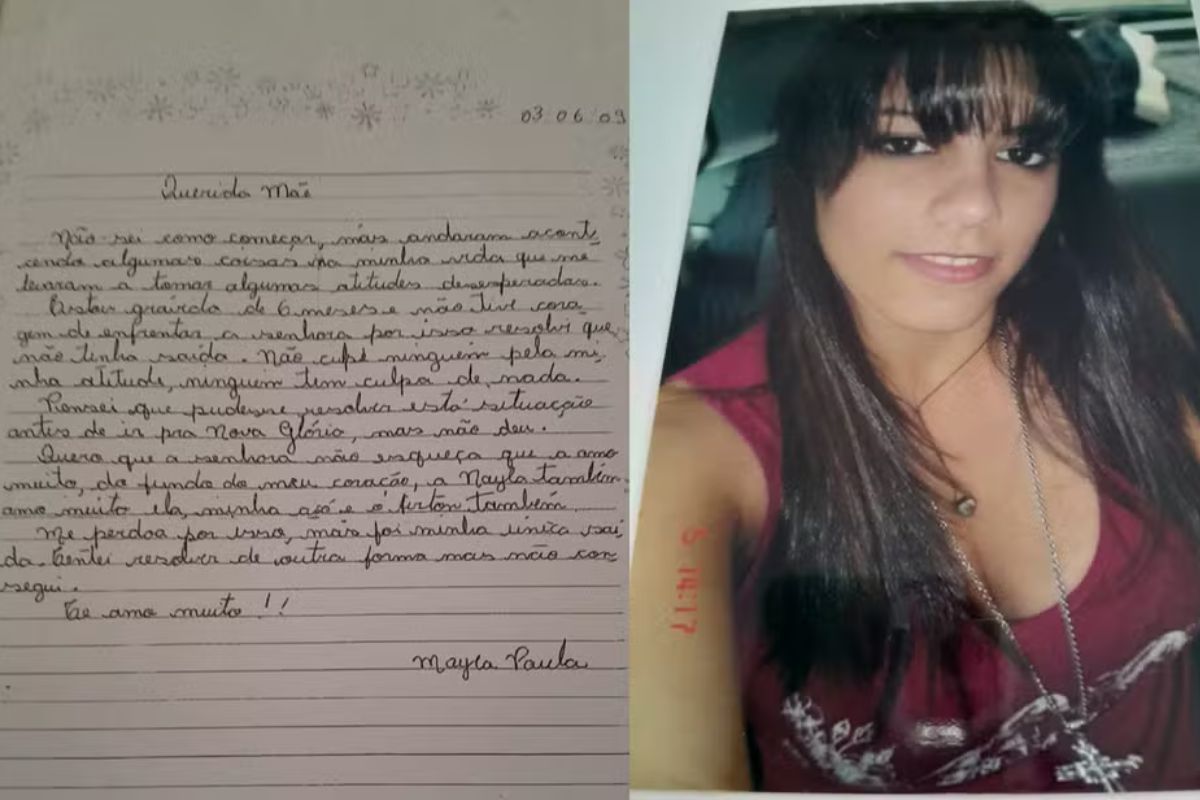 03 06 09
Querida Mãe
Não sei como começar, mas andaram aconte
cendo algumas coisas na minha vida que me
levaram a tomar algumas atitudes desesperadas.
Estou grávida de 6 meses e não tive cora
gem de enfrentar a senhora por isso resolvi que
não tinha saída. Não culpe ninguém pela mi
nha atitude, ninguém tem culpa de nada.
Pensei que pudesse resolver está situação
antes de ir pra Nova Glória, mas não deu.
Quero que a senhora não esqueça que a amo
muito, do fundo do meu coração, a Nayla também
amo muito ela, minha avó e o também
Me perdoa por isso, mais foi minha única saí
da. Tentei resolver de outra forma mas não con
segui.
Te amo muito !!
Mayla Paula
5 14:17